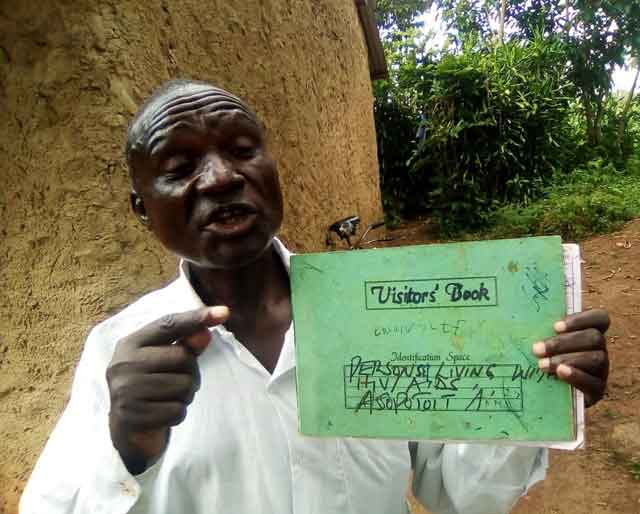 Visitors' Book
Identification Space
PERSONS LIVING WITH
HIV/AIDS
ASOPOTOIT 'A'